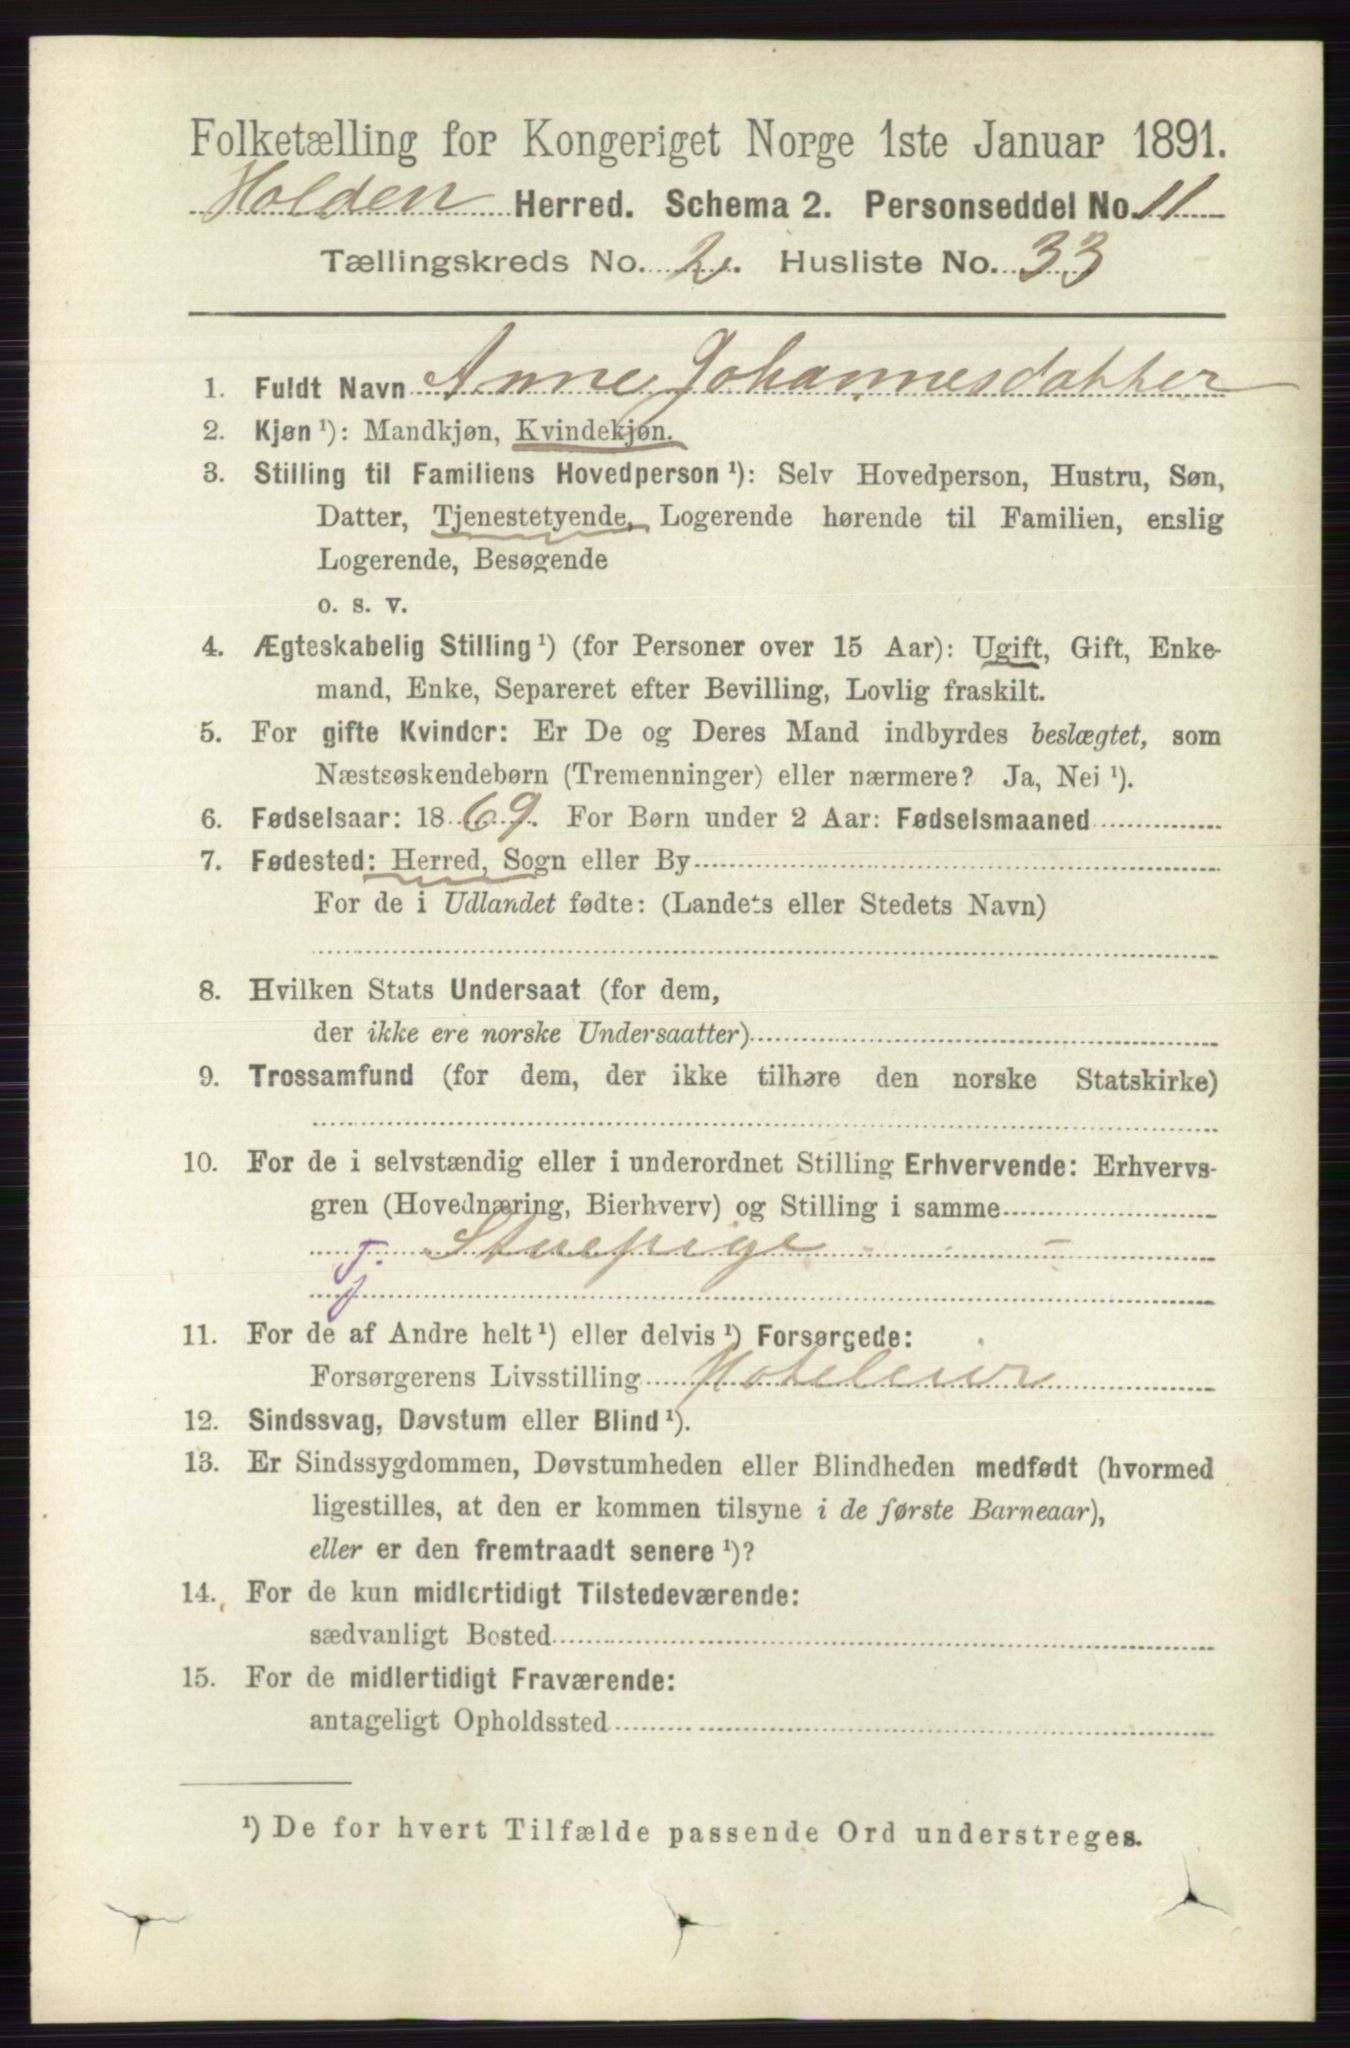 Folketælling for Kongeriget Norge 1ste Januar 1891.
Holden Herred. Schema 2. Personseddel No. 11
Tællingskreds No. 2. Husliste No. 33
1. Fuldt Navn Anne Johannesdatter
2. Kjøn ¹): Mandkjøn, Kvindekjøn.
3. Stilling til Familiens Hovedperson ¹): Selv Hovedperson, Hustru, Søn,
Datter, Tjenestetyende, Logerende hørende til Familien, enslig
Logerende, Besøgende
o. s. v.
4. Ægteskabelig Stilling ¹) (for Personer over 15 Aar): Ugift, Gift, Enke-
mand, Enke, Separeret efter Bevilling, Lovlig fraskilt.
5. For gifte Kvinder: Er De og Deres Mand indbyrdes beslægtet, som
Næstsøskendebørn (Tremenninger) eller nærmere? Ja, Nei ¹).
6. Fødselsaar: 1869. For Børn under 2 Aar: Fødselsmaaned
7. Fødested: Herred, Sogn eller By
For de i Udlandet fødte: (Landets eller Stedets Navn)
8. Hvilken Stats Undersaat (for dem,
der ikke ere norske Undersaatter)
9. Trossamfund (for dem, der ikke tilhøre den norske Statskirke)
10. For de i selvstændig eller i underordnet Stilling Erhvervende: Erhvervs-
gren (Hovednæring, Bierhverv) og Stilling i samme
Tj. Stuepige
11. For de af Andre helt ¹) eller delvis ¹) Forsørgede:
Forsørgerens Livsstilling Hoteleier
12. Sindssvag, Døvstum eller Blind ¹).
13. Er Sindssygdommen, Døvstumheden eller Blindheden medfødt (hvormed
ligestilles, at den er kommen tilsyne i de første Barneaar),
eller er den fremtraadt senere ¹)?
14. For de kun midlertidigt Tilstedeværende:
sædvanligt Bosted
15. For de midlertidigt Fraværende:
antageligt Opholdssted
¹) De for hvert Tilfælde passende Ord understreges.